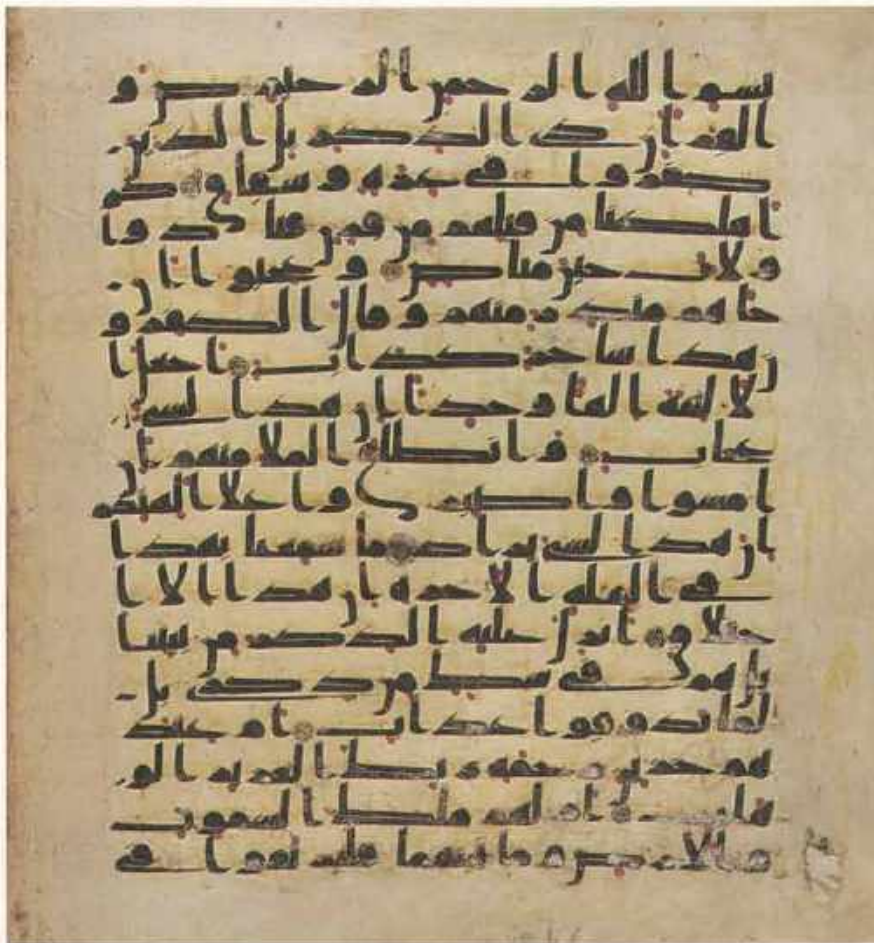 بسم الله الرحمن الرحيم ص و
القران ذي الذكر بل الذين
كفروا في عزة وشقاق كم
اهلكنا من قبلهم من قرن فنادوا
ولات حين مناص وعجبوا ان
جاهم منذر منهم وقال الكفرو
ن هذا سحر كذاب اجعل ا
لالهة الها وحدا ان هذا لشي
عجاب وانطلق الملا منهم ان
امشوا واصبروا على الهتكم
ان هذا لشي يراد ما سمعنا بهذا
في الملة الاخرة ان هذا الا ا
ختلق انزل عليه الذكر من بيننا
بل هم في شك من ذكري بل
لما يذوقوا عذاب ام عند
هم خزين رحمة ربك العزيز الو
هاب ام لهم ملك السموت
والارض وما بينهما فليرتقوا في